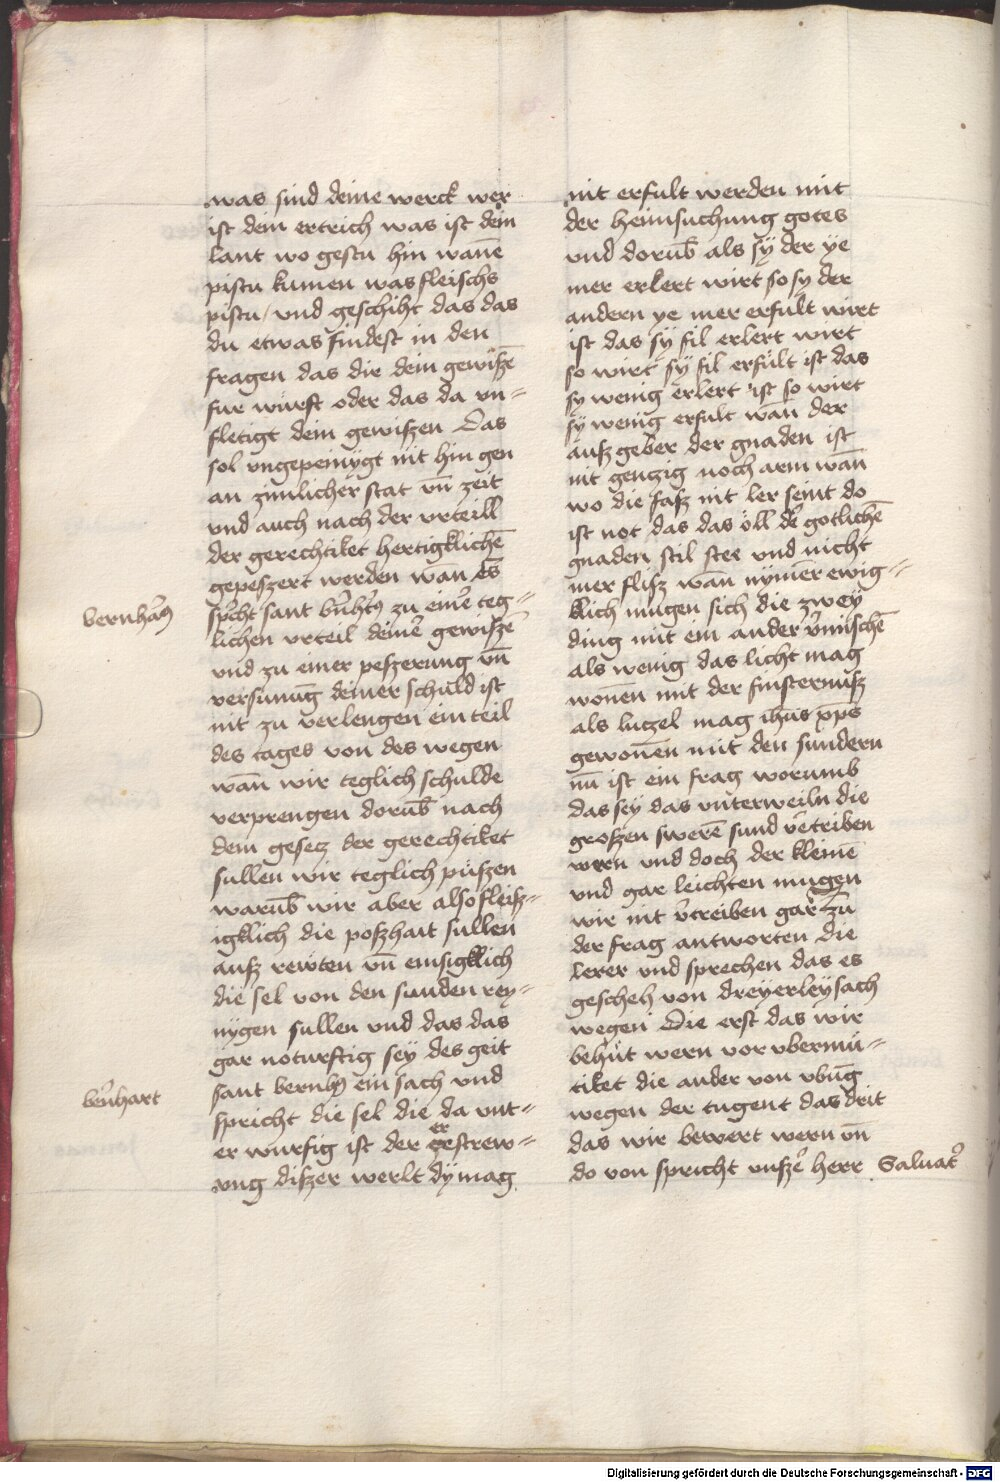 was sind deine werck wer
ist dein ertrich was ist dein
lant wo gestu hin wañe
pistu kumen was fleischs
pistu / und geschiht das das
du etwas findest in den
fragen das die dein gewißē
fur wurft oder das da vn=
fletigt dein gewißen Das
sol ungepeinigt nit hin gen
an zimlicher stat vn̄ zeit
und auch nach der urteill
der gerechtiket hertigklichē
gepeszert werden wan es
bernhar9
sp̄cht sant b̄nht9 zu eine᷑ teg=
lichen urteil deine᷑ gewißē
und zu einer peszerung vn̄
versunūg deiner schuld ist
nit zu verlengen ein teil
des tages von des wegen
wan̄ wir teglich schulde
verprengen dorub̄ nach
dem gesetz der gerechtiket
sullen wir teglich püszen
warub̄ wir aber also fleisz=
igklich die poszhait sullen
ausz rewten vn̄ emsigklich
die sel von den sunden rey=
nygen sullen und das das
gar noturftig sey des geit
sant bernh9 ein sach und
be᷑nhart
spricht die sel die da unt=
er wurfig ist der zerstrew=
ung diszer werlt dÿ mag
nit erfult werden mit
der heimsuchung gotes
und dorub̄ als sÿ der ye
mer erlert wirt so sy der
andern ye mer erfult wirt
ist das sÿ fil erlert wirt
so wirt sÿ fil erfült ist das
sy wenig erlert ist so wirt
sÿ wenig erfult wan der
ausz geber der gnaden ist
nit geitzig noch arm wan̄
wo die fasz nit ler seint do
ist not das das öll de᷑ gotlichē
gnaden stil stee und nicht
mer flisz wan̄ nymer ewig=
klich mugen sich die zweÿ
ding mit ein ander v᷑mischē
als wenig das licht mag
wonen mit der finsternusz
als lutzel mag ihūs xp̄s
gewonen mit den sundern
nū ist ein frag worumb
das seÿ das unterweiln die
groszen swerē sund v᷑triben
wern und doch der kleinē
und gar leichten mugen
wir nit v᷑treiben gar Zu
der frag antworten die
lerer und sprechen das es
gescheh von dreyerleÿ sach
wegen Die erst das wir
behüt wern vor ubermü=
tiket die ander von ubūg
wegen der tugent das drit
das wir bewert wern vn̄
do von spricht unsze᷑ herr Saluat᷑
Digitalisierung gefördert durch die Deutsche Forschungsgemeinschaft - DFG